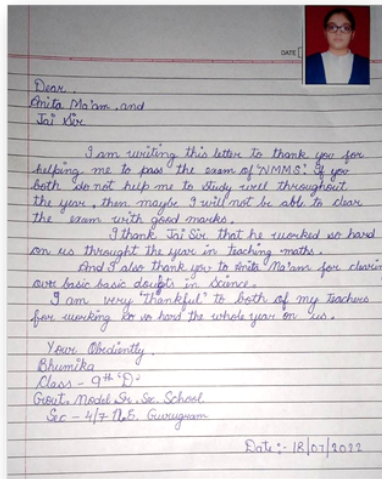 DATE
Dear,
Anita Ma'am, and
Jai Sir
I am writing this letter to thank you for
helping me to pass the exam of 'NMMS'. If you
both do not help me to study well throughout
the year, then maybe I will not be able to clear
the exam with good marks.
I thank Jai Sir that he worked so hard
on us throught the year in teaching maths.
And I also thank you to Anita Ma'am for clearin
our basic basic doubts in Science.
I am very 'thankful' to both of my teachers
for working so so hard the whole year on us.
Your Obediently,
Bhumika
Class - 9th 'D'
Govt. Model Sr. Sec. School
Sec - 4/7 U.E. Gurugram
Date :- 18/07/2022